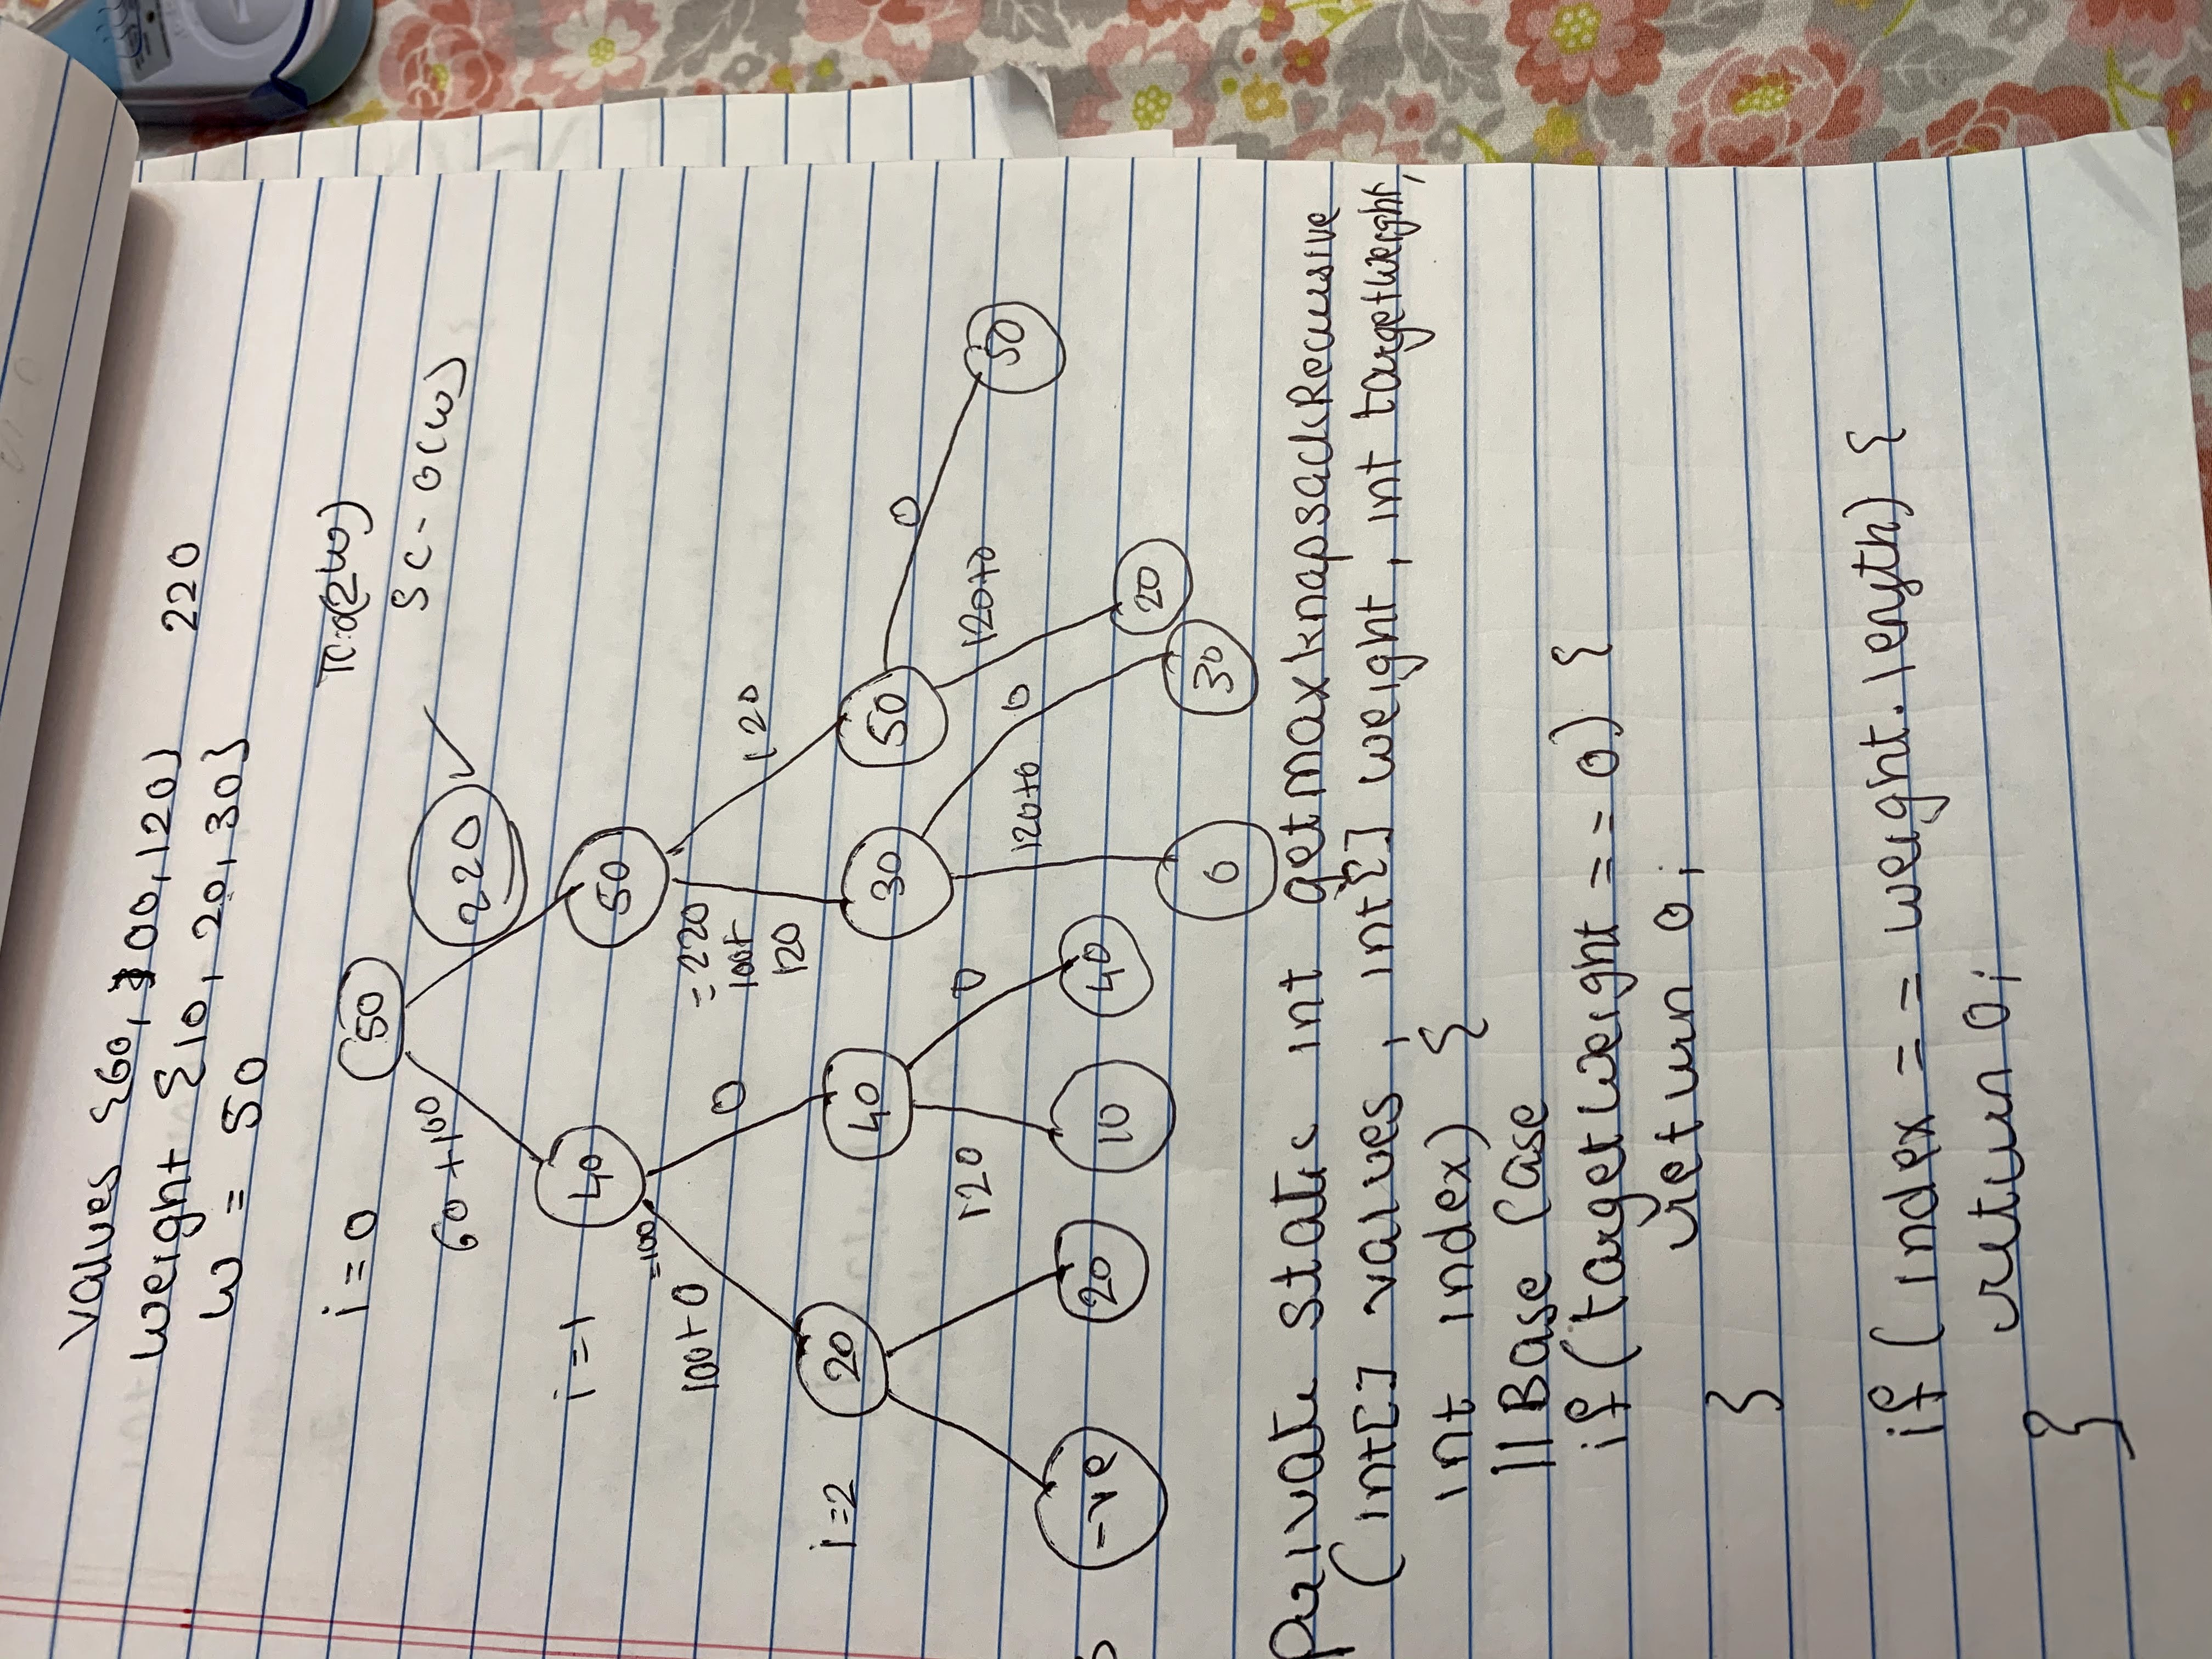 values {60, 100, 120}
weight {10, 20, 30}
220
W = 50
i = 0
50
TC: O(2W)
SC - O(W)
60 + 100
220
i = 1
40
50
= 100
100 + 0
0
= 220
100 +
120
120
i = 2
20
40
30
50
0
120
0
120+0
0
120+0
50
-ve
20
10
40
0
30
20
Private static int getmaxknapsackRecursive
(int[] values, int[] weight, int targetweight,
int index) {
// Base Case
if (targetWeight == 0) {
return 0;
}
if (index == weight.length) {
return 0;
}